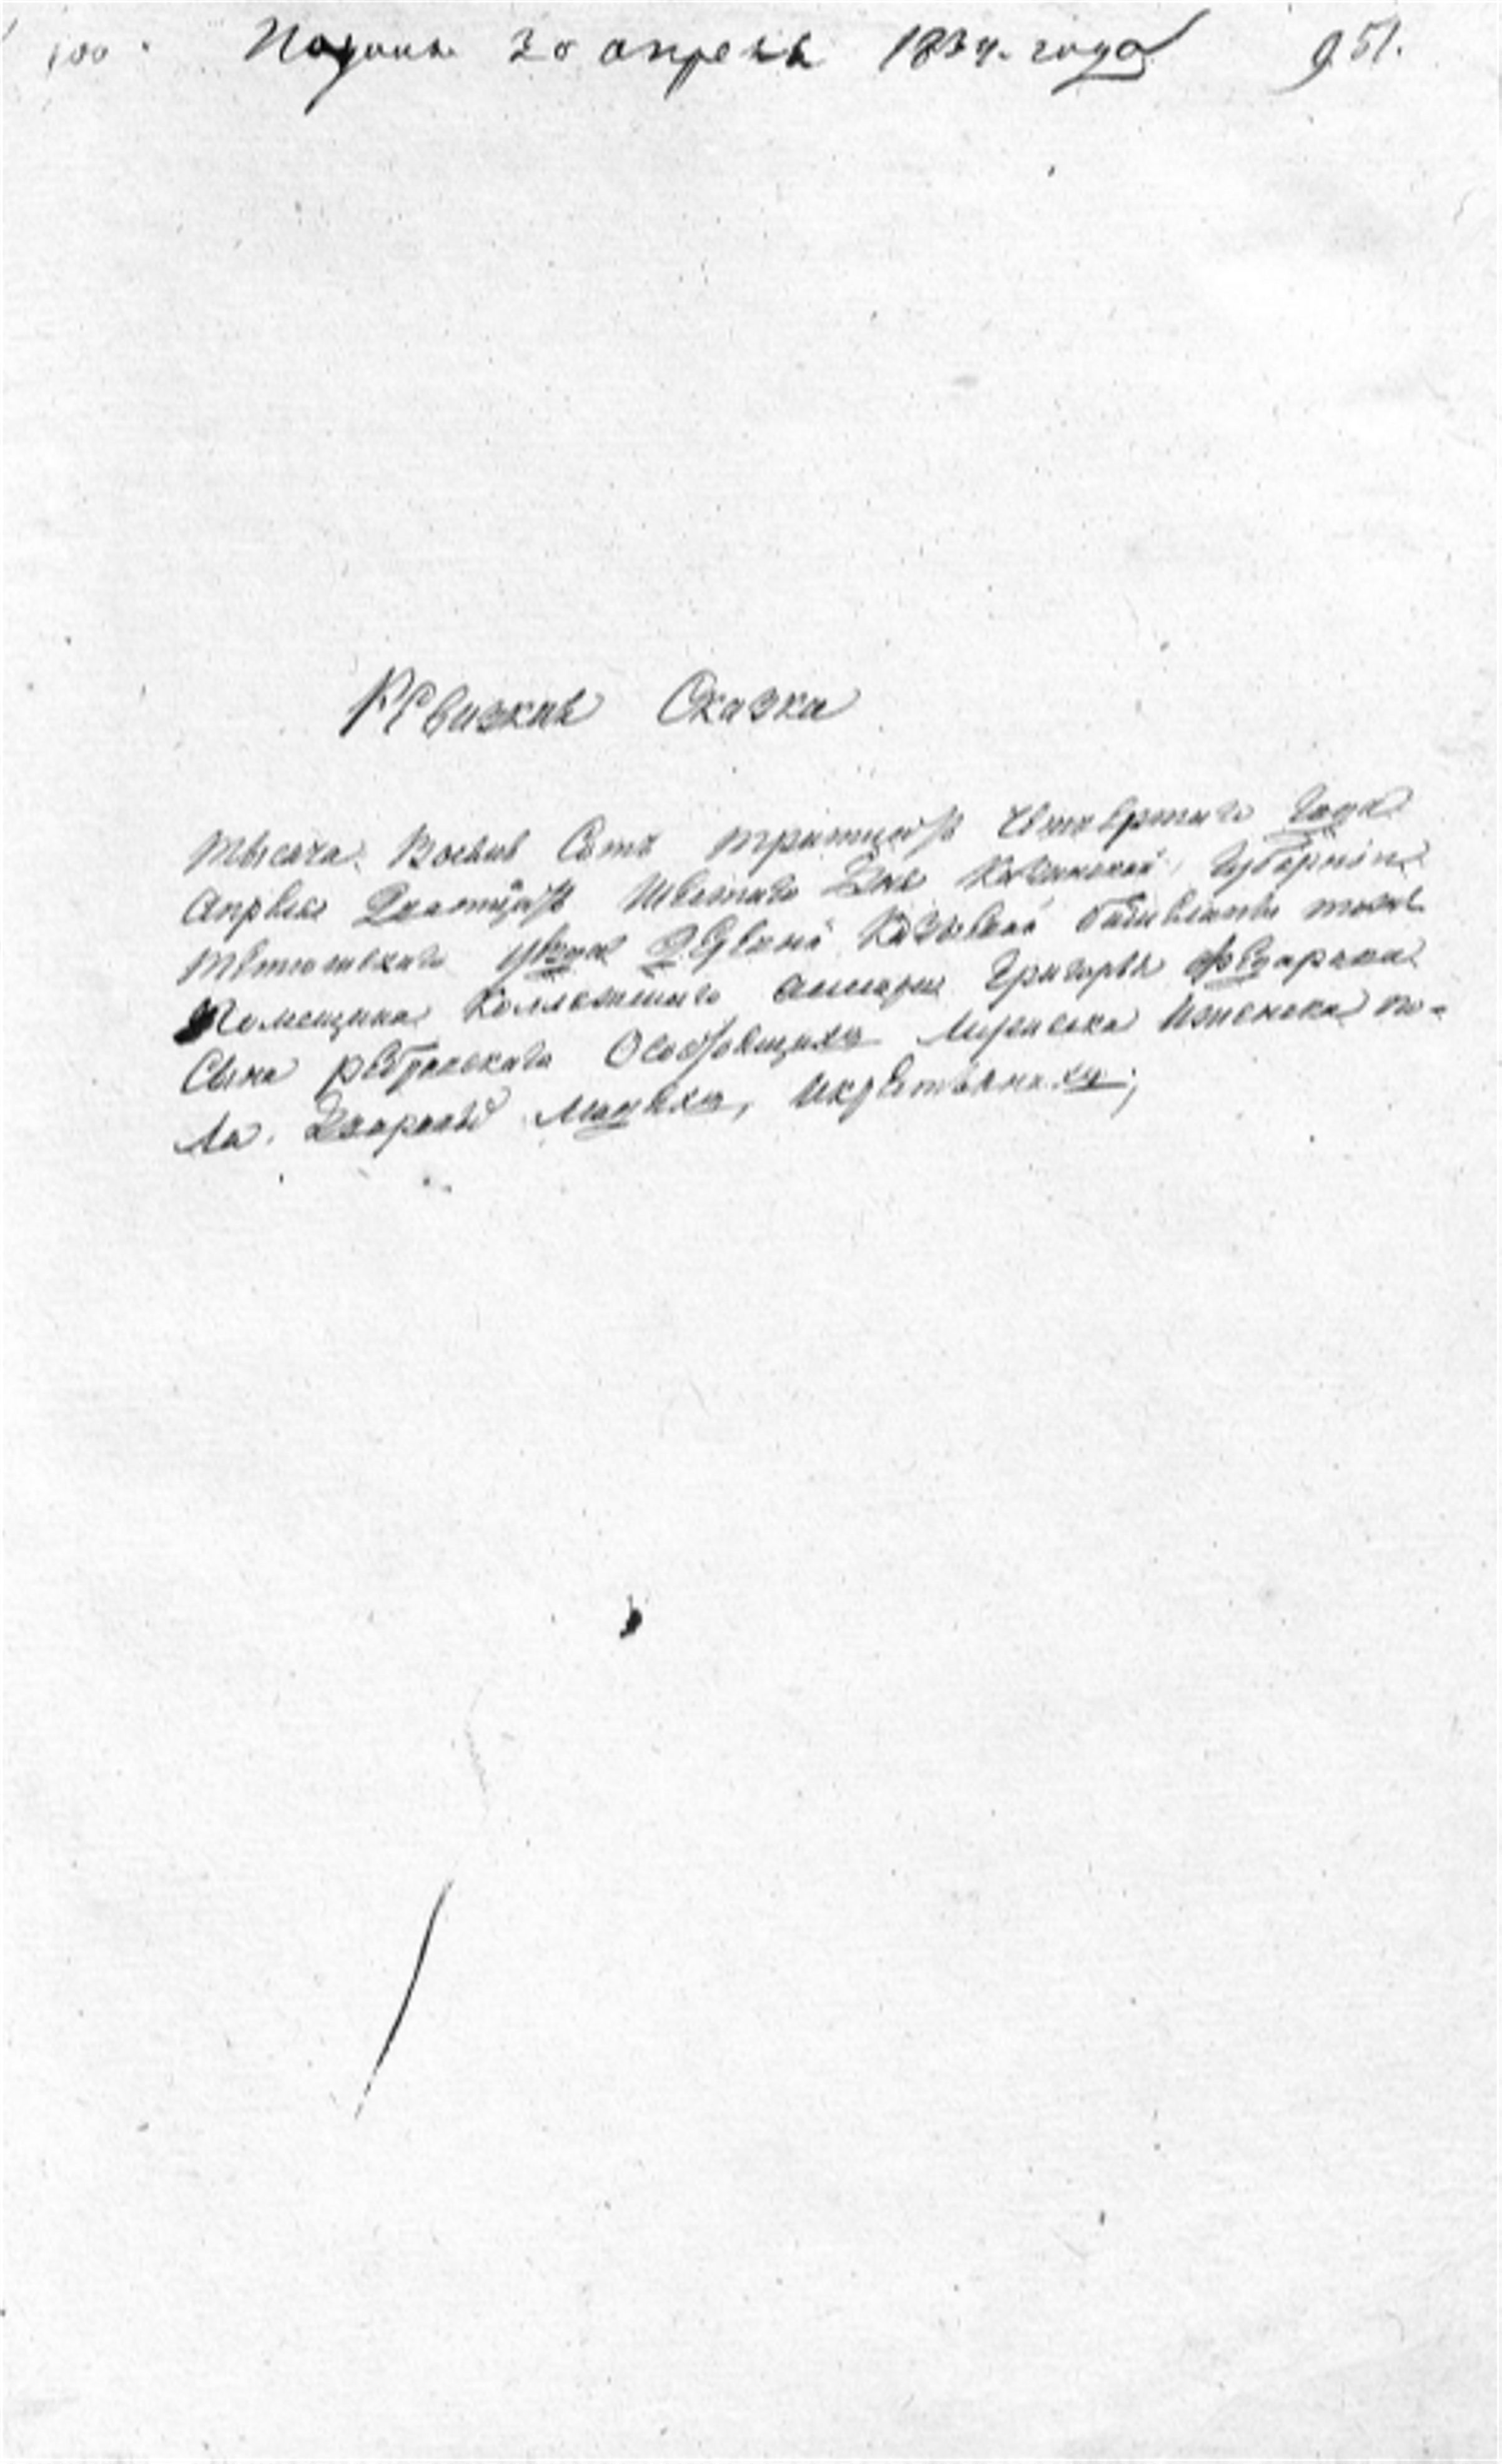 100. Подана 30 апреля 1834. года 951.
Ревизкая Сказка
Тысяча Восемь Сотъ тритцать Четвертаго Года
Апреля Дватцать Шестаго Дня Казанской Губернiи
Тетюшскаго уезда Деревни
Помещика Коллежскаго Григорья Федорова
Сына О Состоящихъ мужеска Иженска по-
ла. Дворовыхъ Людехъ, Икрестьянахъ;